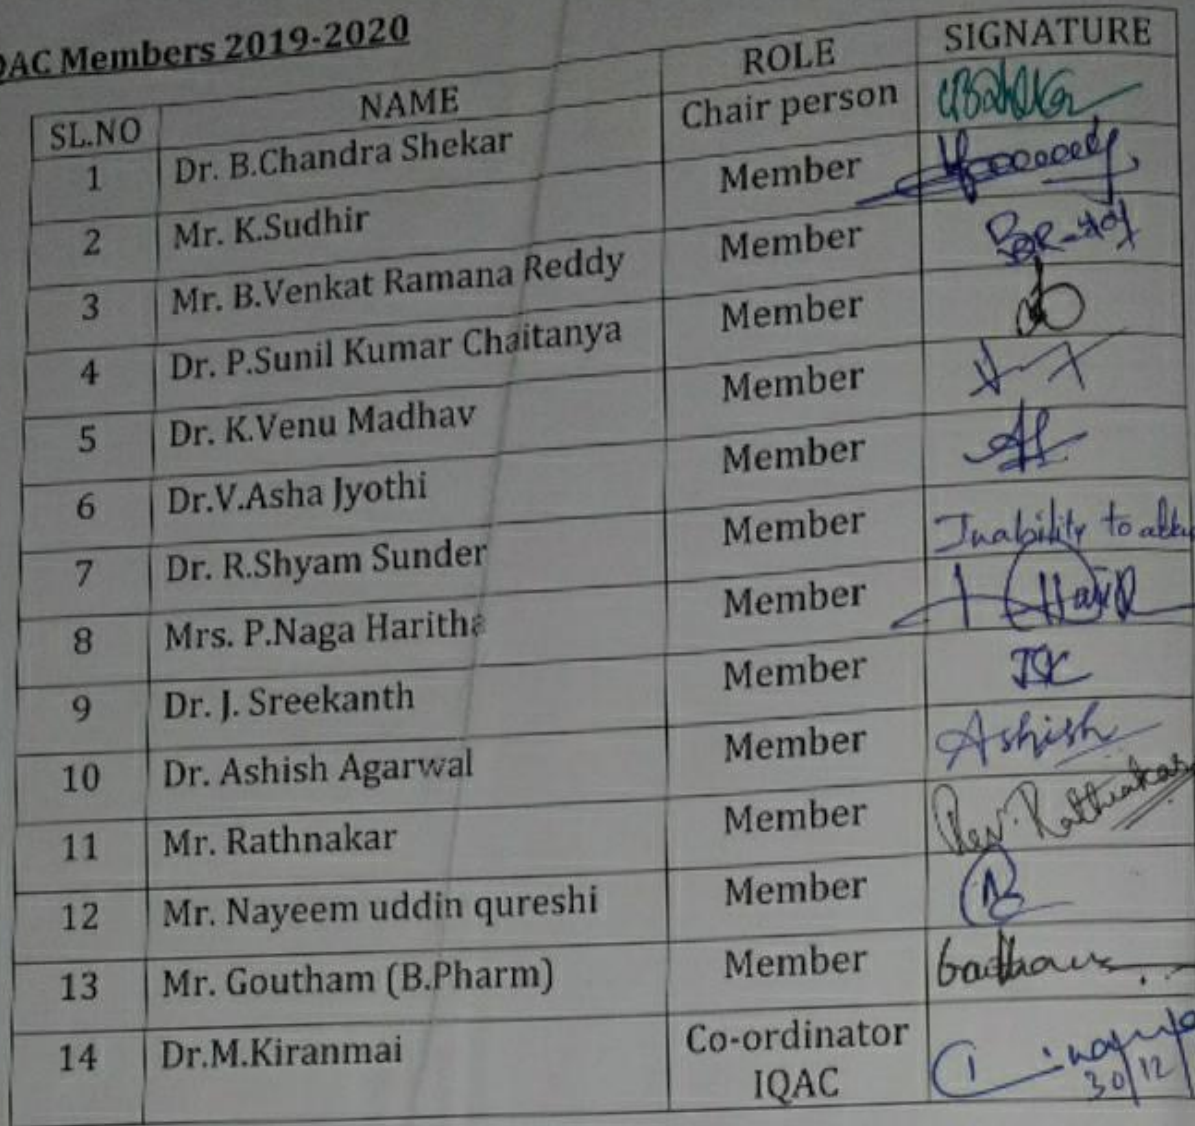 QAC Members 2019-2020
SL.NO NAME ROLE SIGNATURE
1 Dr. B.Chandra Shekar Chair person
2 Mr. K.Sudhir Member
3 Mr. B.Venkat Ramana Reddy Member
4 Dr. P.Sunil Kumar Chaitanya Member
5 Dr. K.Venu Madhav Member
6 Dr.V.Asha Jyothi Member
7 Dr. R.Shyam Sunder Member Inability to
8 Mrs. P.Naga Haritha Member
9 Dr. J. Sreekanth Member
10 Dr. Ashish Agarwal Member Ashish
11 Mr. Rathnakar Member Rev. Rathnakar
12 Mr. Nayeem uddin qureshi Member
13 Mr. Goutham (B.Pharm) Member
14 Dr.M.Kiranmai Co-ordinator IQAC 30/12